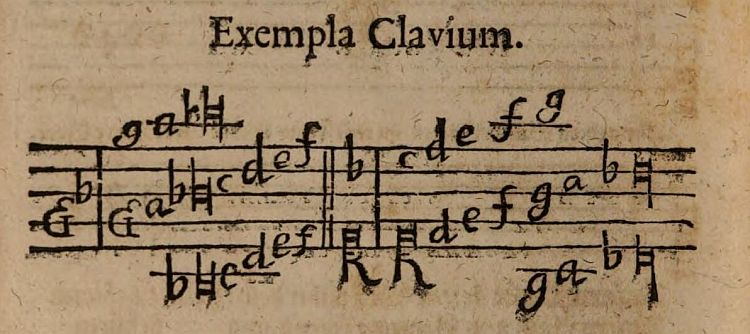 Exempla Clavium.
g a b ♮
G b G a b ♮ c d e f
b ♮ c d e f
b c d e f g
d e f g a b ♮
g a b ♮